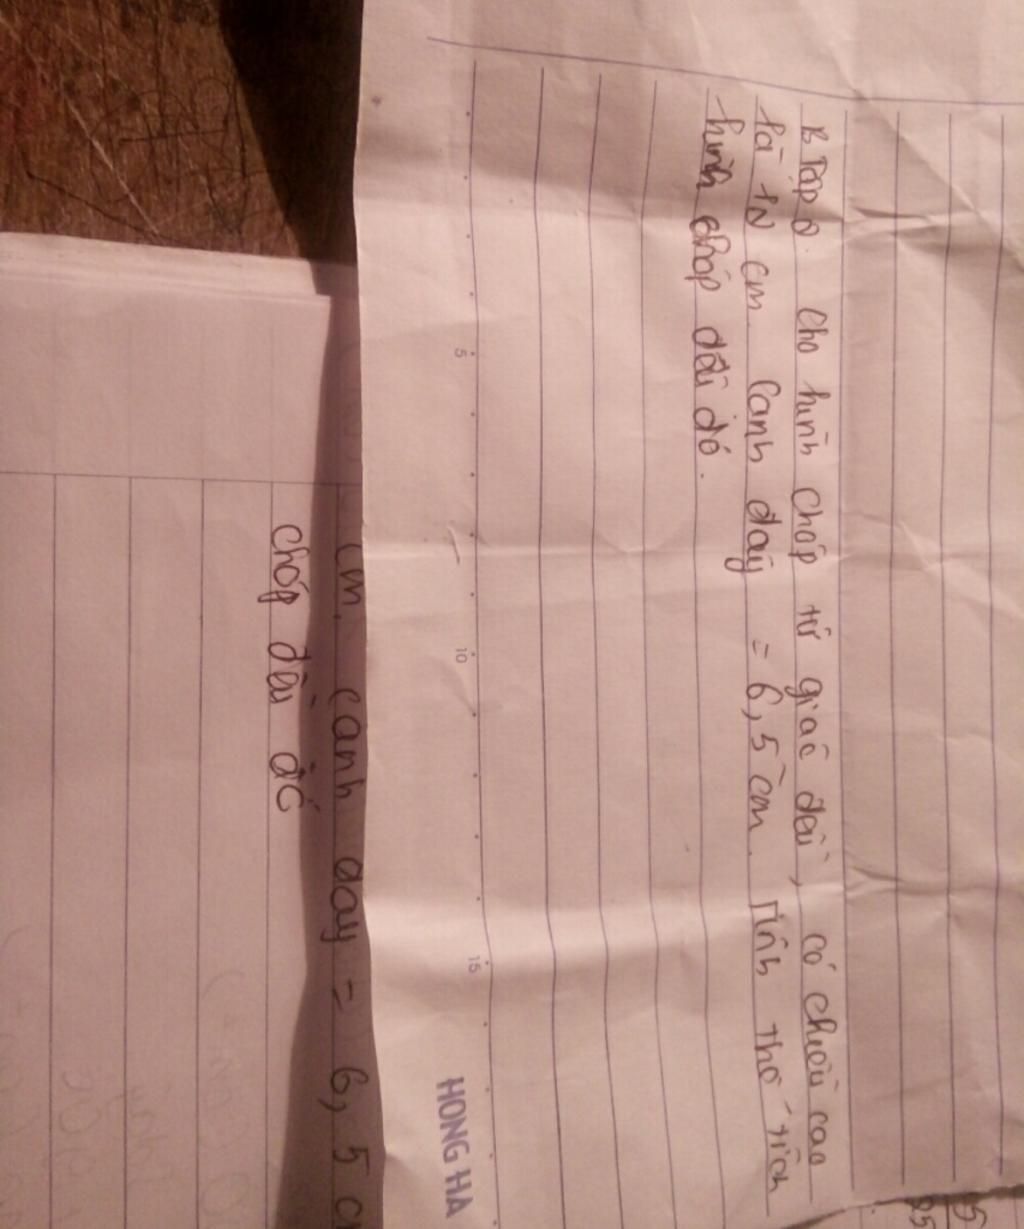 B Tập 2. Cho hình chóp tứ giác đều, có chiều cao
là 12 cm. Canh đáy = 6,5 cm. Tính thể tích
hình chóp đều đó.
5
10
15
HONG HA
cm. canh đay = 6,5 c
chóp đều đó